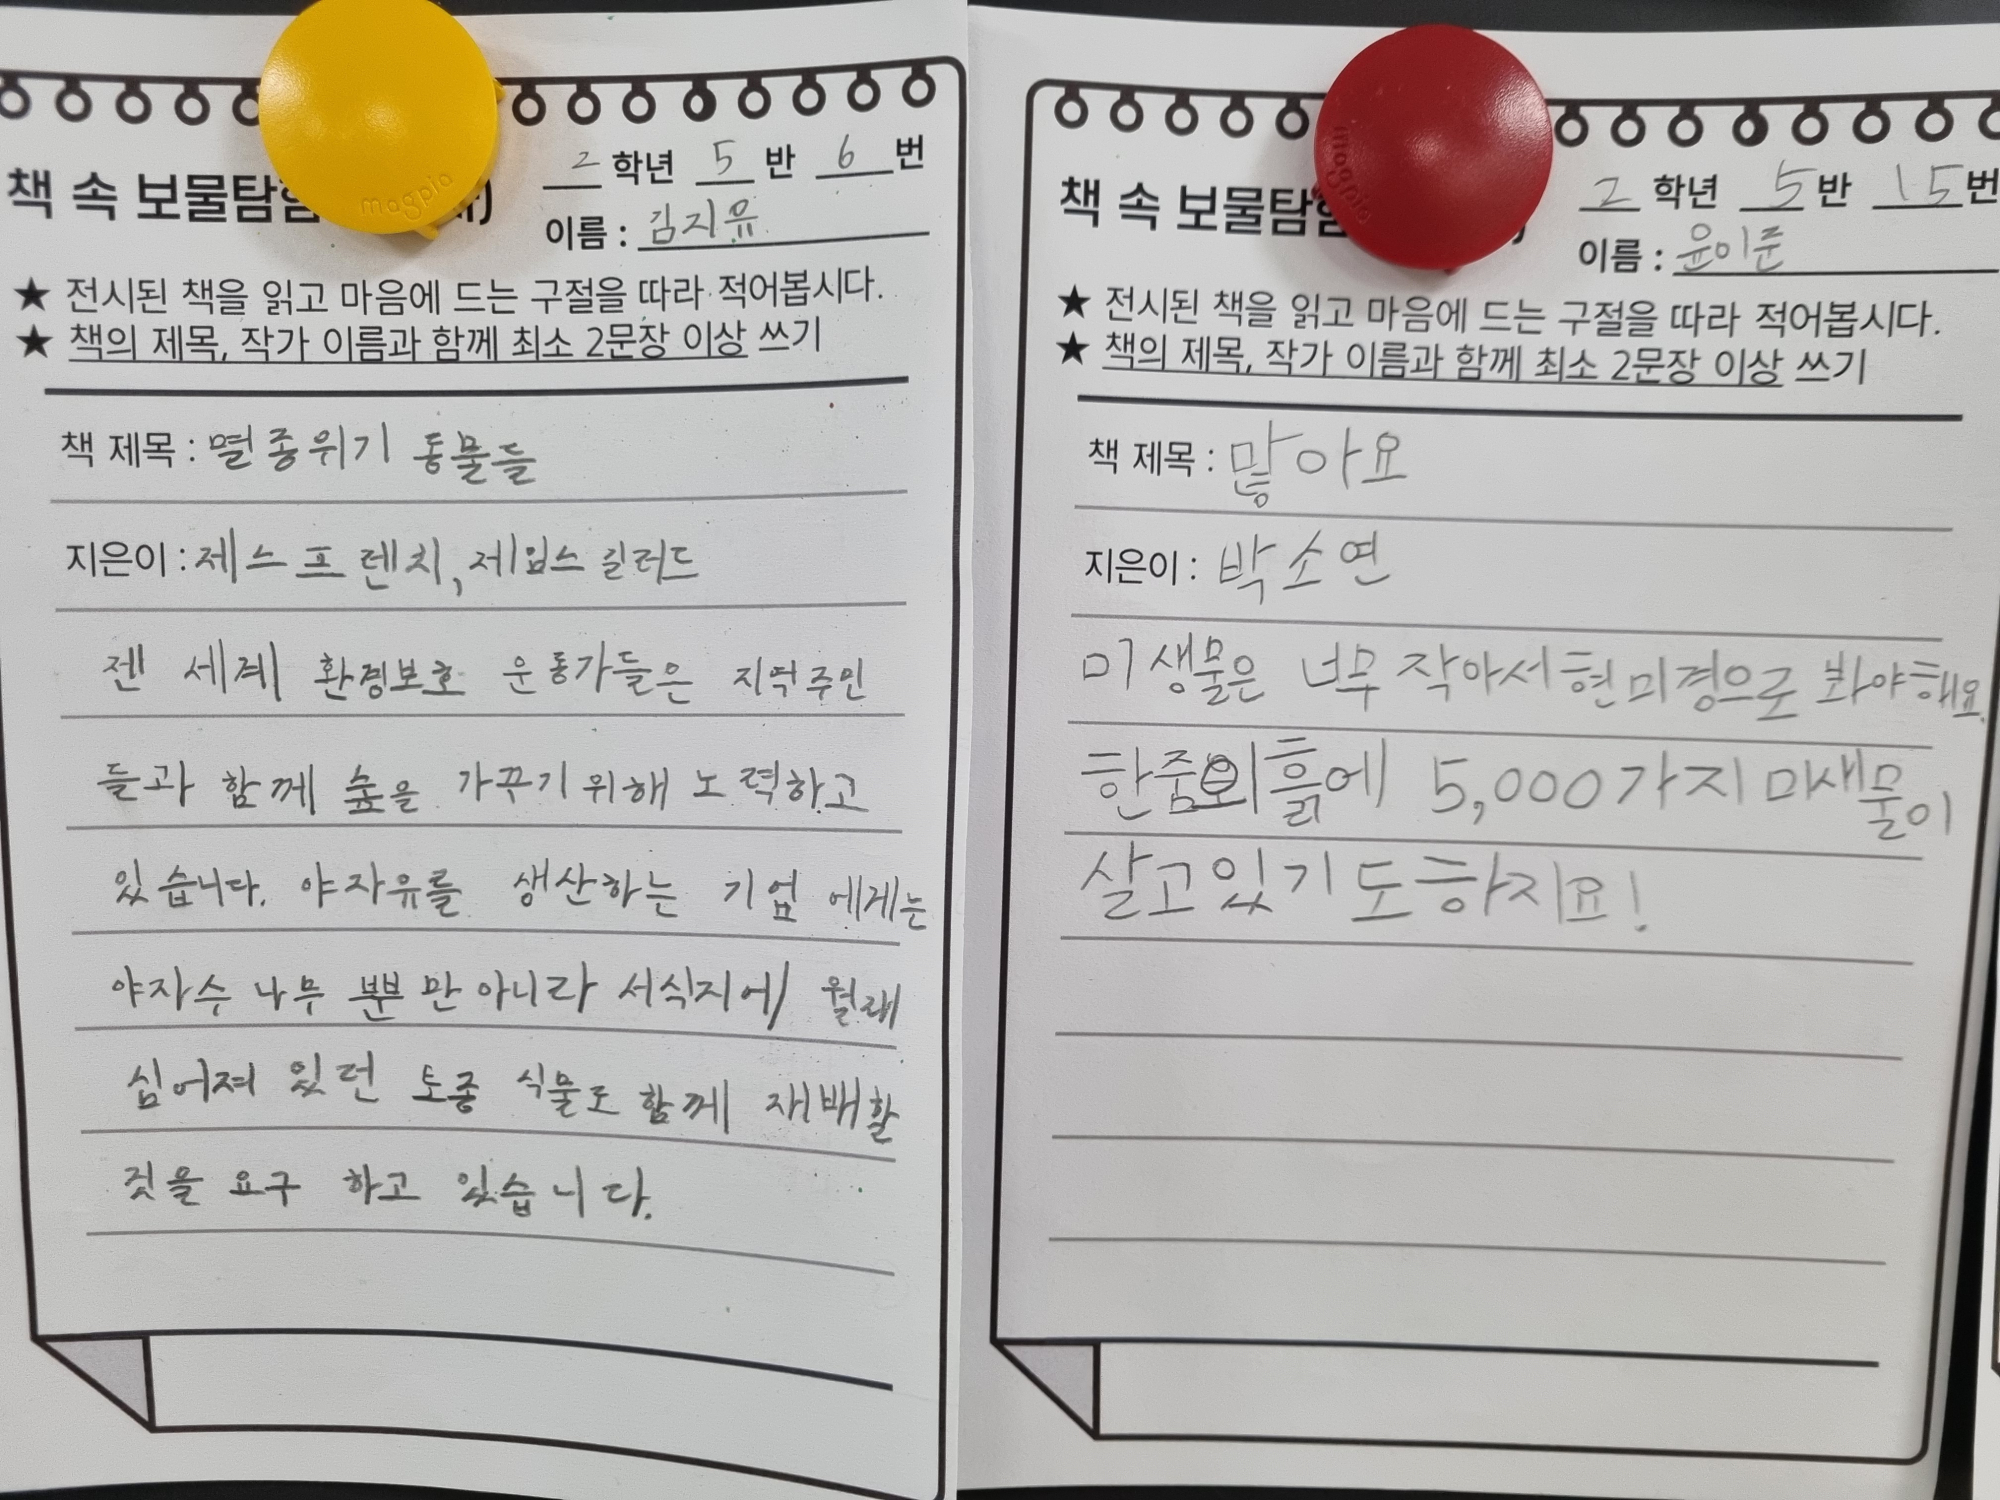 magpie
책 속 보물탐험
2 학년 5 반 6 번
이름 : 김지유
★ 전시된 책을 읽고 마음에 드는 구절을 따라 적어봅시다.
★ 책의 제목, 작가 이름과 함께 최소 2문장 이상 쓰기
책 제목 : 멸종위기 동물들
지은이 : 제스 프렌치, 제임스 길러드
젠 세계 환경보호 운동가들은 지역주민
들과 함께 숲을 가꾸기 위해 노력하고
있습니다. 야자유를 생산하는 기업에게는
야자수 나무 뿐만 아니라 서식지에 원래
심어져 있던 토종 식물도 함께 재배할
것을 요구 하고 있습니다.
magpie
책 속 보물탐험
2 학년 5 반 15 번
이름 : 윤이준
★ 전시된 책을 읽고 마음에 드는 구절을 따라 적어봅시다.
★ 책의 제목, 작가 이름과 함께 최소 2문장 이상 쓰기
책 제목 : 많아요
지은이 : 박소연
미생물은 너무 작아서 현미경으로 봐야해요.
한줌의 흙에 5,000가지 미새물이
살고있기도하지요!